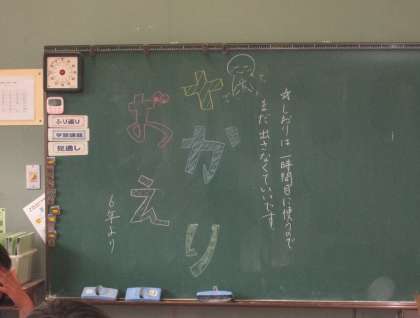 ☆しおりは一時間目に使うので
まだ出さなくていいです。
やがり
おえ
6年より
ふり返り
学習課題
見通し